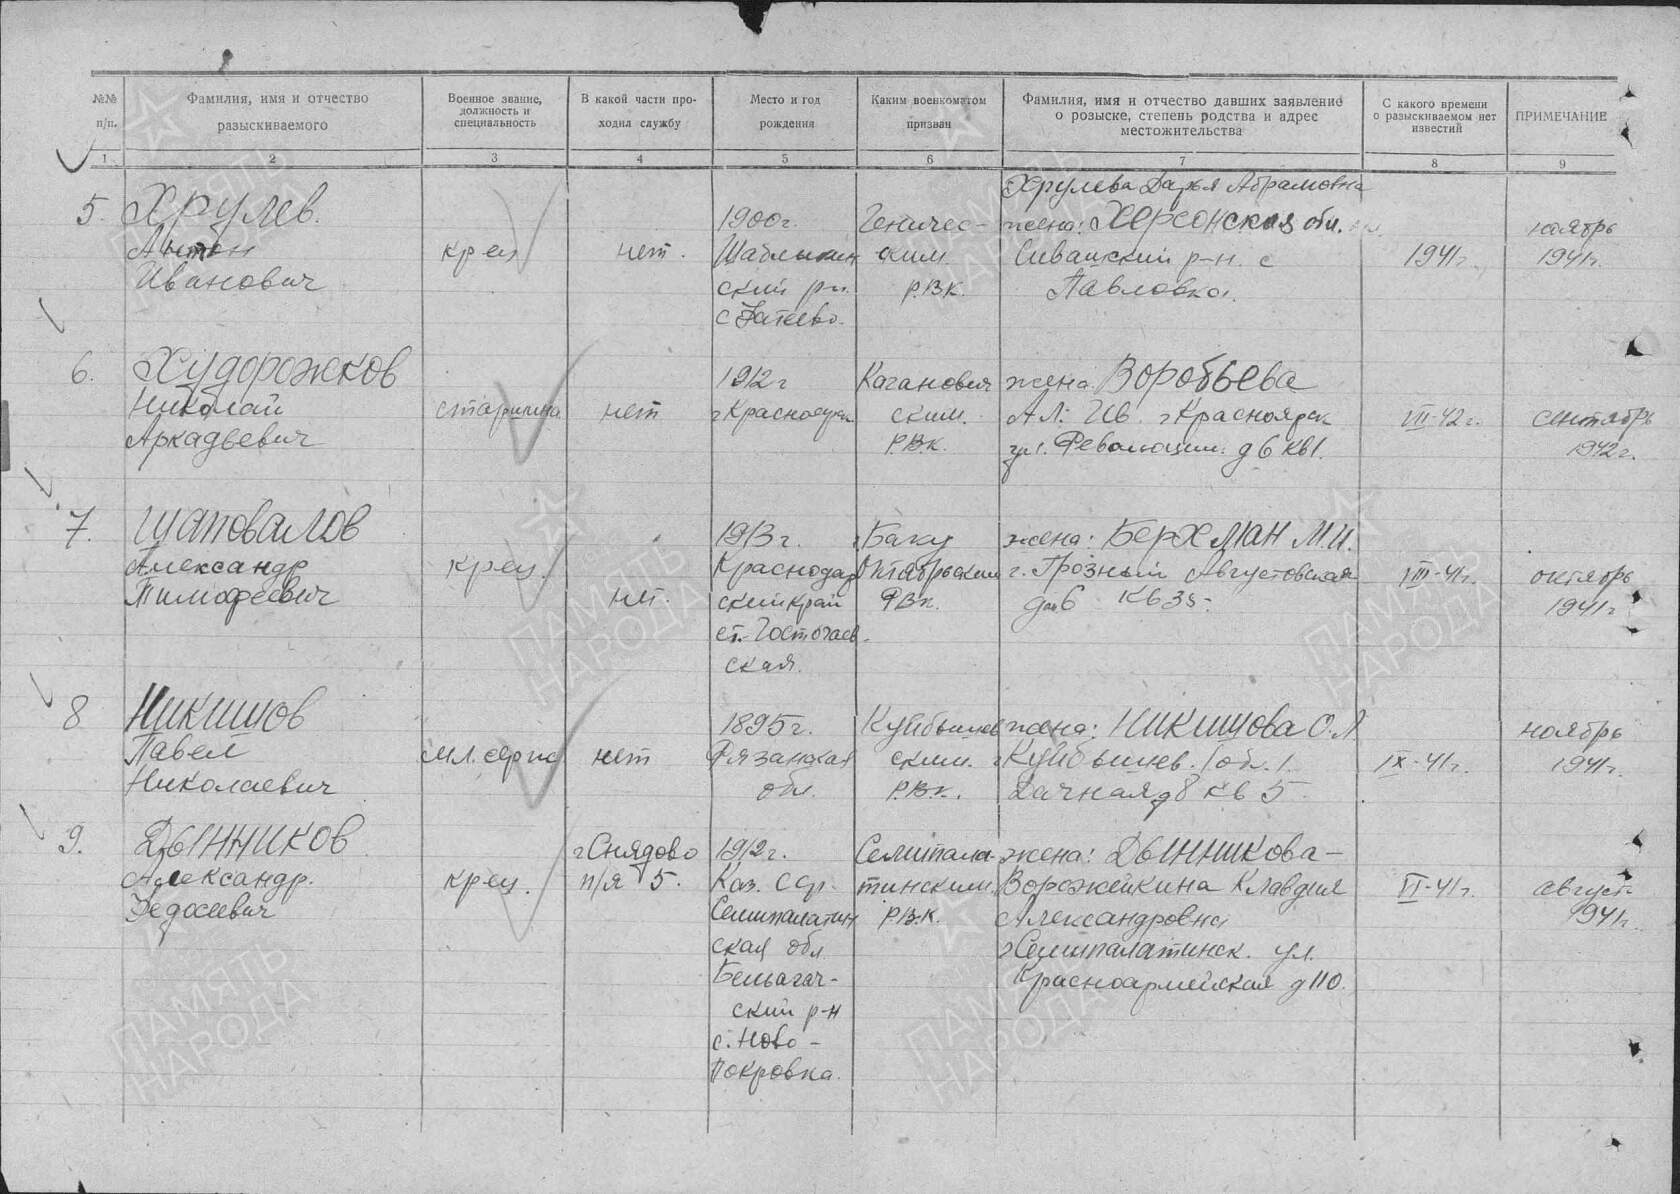 №№ п/п.
Фамилия, имя и отчество разыскиваемого
Военное звание, должность и специальность
В какой части проходил службу
Место и год рождения
Каким военкоматом призван
Фамилия, имя и отчество давших заявление о розыске, степень родства и адрес местожительства
С какого времени о разыскиваемом нет известий
ПРИМЕЧАНИЕ
1 2 3 4 5 6 7 8 9
5. Хрулев.
Антон
Иванович
крец
нет.
1900г.
Шаблыкин
ский рн.
Геничес-
ким
Р.В.К.
Хрулева Дарья Абрамовна
жена: Херсонская обл.
Сивашский р-н. с
Павловка.
1941г.
ноябрь
1941г.
6. Худорожков
Николай
Аркадьевич
старшина
нет
1912г
г Красноярск
Каганович
ским.
Р.В.К.
жена Воробьева
Ал. Ив. г Красноярск
ул. Революции: д 6 кв 1.
VIII-42г.
сентябрь
1942г.
7. Шаповалов
Александр
Тимофеевич
крец.
нет.
1913г.
Краснодар
ский край
ст. Гостогаев-
ская.
г. Баку
Октябрьским
РВк.
жена: Берхман М.И.
г. Грозный Августовская
дом 6 кв 35.
VIII-41г.
октябрь
1941г
8 Никишов
Павел
Николаевич
мл. серж
нет
1895г.
Рязанская
обл.
Куйбышев
ским.
Р.В.К.
жена: Никишова О.Л
г Куйбышев. /обл./.
Дачная д 8 кв 5
IX-41г.
ноябрь
1941г.
9. Дынников
Александр.
Федосеевич
крец.
г Снядово
п/я 5.
1912г.
Каз. ССР.
Семипалатин
ская обл
Бельагач-
ский р-н
с. Ново-
Покровка.
Семипала-
тинским.
Р.В.К.
жена: Дынникова-
Ворожейкина Клавдия
Александровна
г Семипалатинск. ул.
Красноармейская д 110.
VI-41г.
август-
1941г.
ПАМЯТЬ НАРОДА
ПАМЯТЬ НАРОДА
ПАМЯТЬ НАРОДА
ПАМЯТЬ НАРОДА
ПАМЯТЬ НАРОДА
ПАМЯТЬ НАРОДА